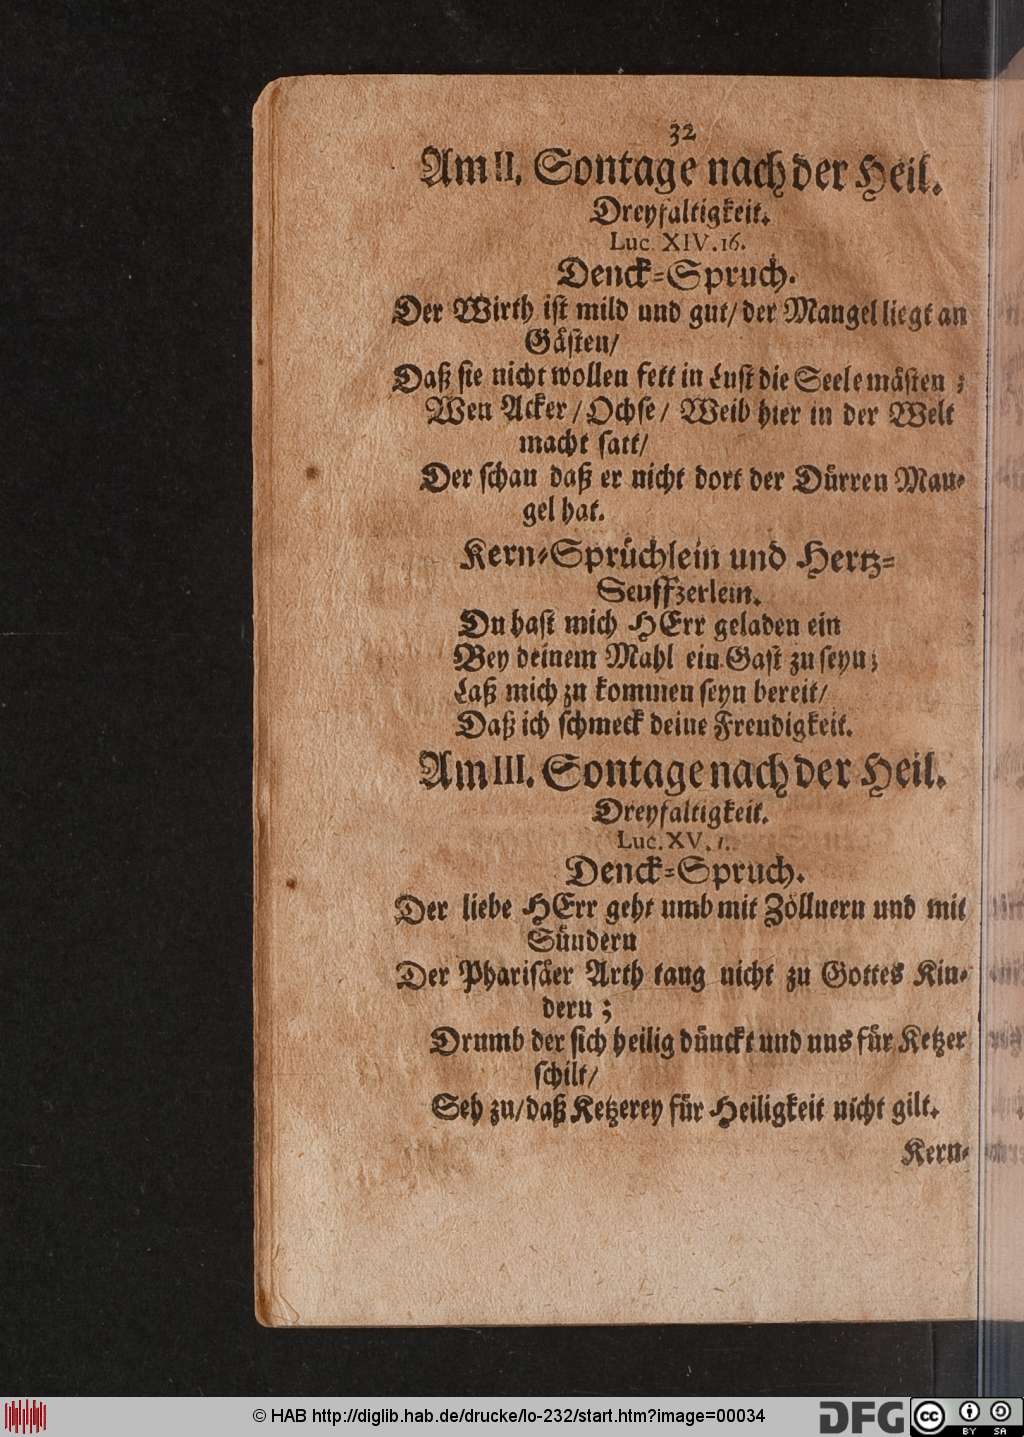 32
Am II. Sontage nach der Heil.
Dreyfaltigkeit.
Luc. XIV. 16.
Denck-Spruch.
Der Wirth ist mild und gut/ der Mangel liegt an
Gästen/
Daß sie nicht wollen fett in Lust die Seele mästen;
Wen Acker/ Ochse/ Weib hier in der Welt
macht satt/
Der schau daß er nicht dort der Dürren Man-
gel hat.
Kern-Sprüchlein und Hertz-
Seuffzerlein.
Du hast mich HErr geladen ein
Bey deinem Mahl ein Gast zu seyn;
Laß mich zu kommen seyn bereit/
Daß ich schmeck deine Freudigkeit.
Am III. Sontage nach der Heil.
Dreyfaltigkeit.
Luc. XV. 1.
Denck-Spruch.
Der liebe HErr geht umb mit Zöllnern und mit
Sündern
Der Pharisäer Arth taug nicht zu Gottes Kin-
dern;
Drumb der sich heilig dünckt und uns für Ketzer
schilt/
Seh zu/ daß Ketzerey für Heiligkeit nicht gilt.
Kern-
© HAB http://diglib.hab.de/drucke/lo-232/start.htm?image=00034
DFG
cc BY SA